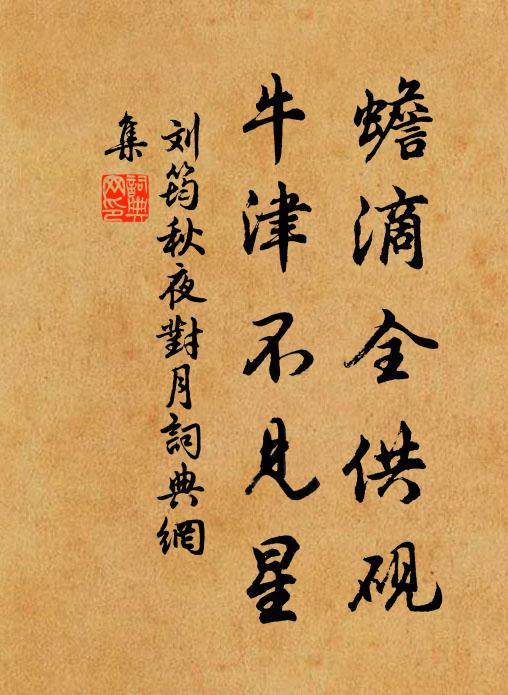 蟾滴全供砚
牛津不見星
刘筠秋夜對月詞典網
集
詞典
网印